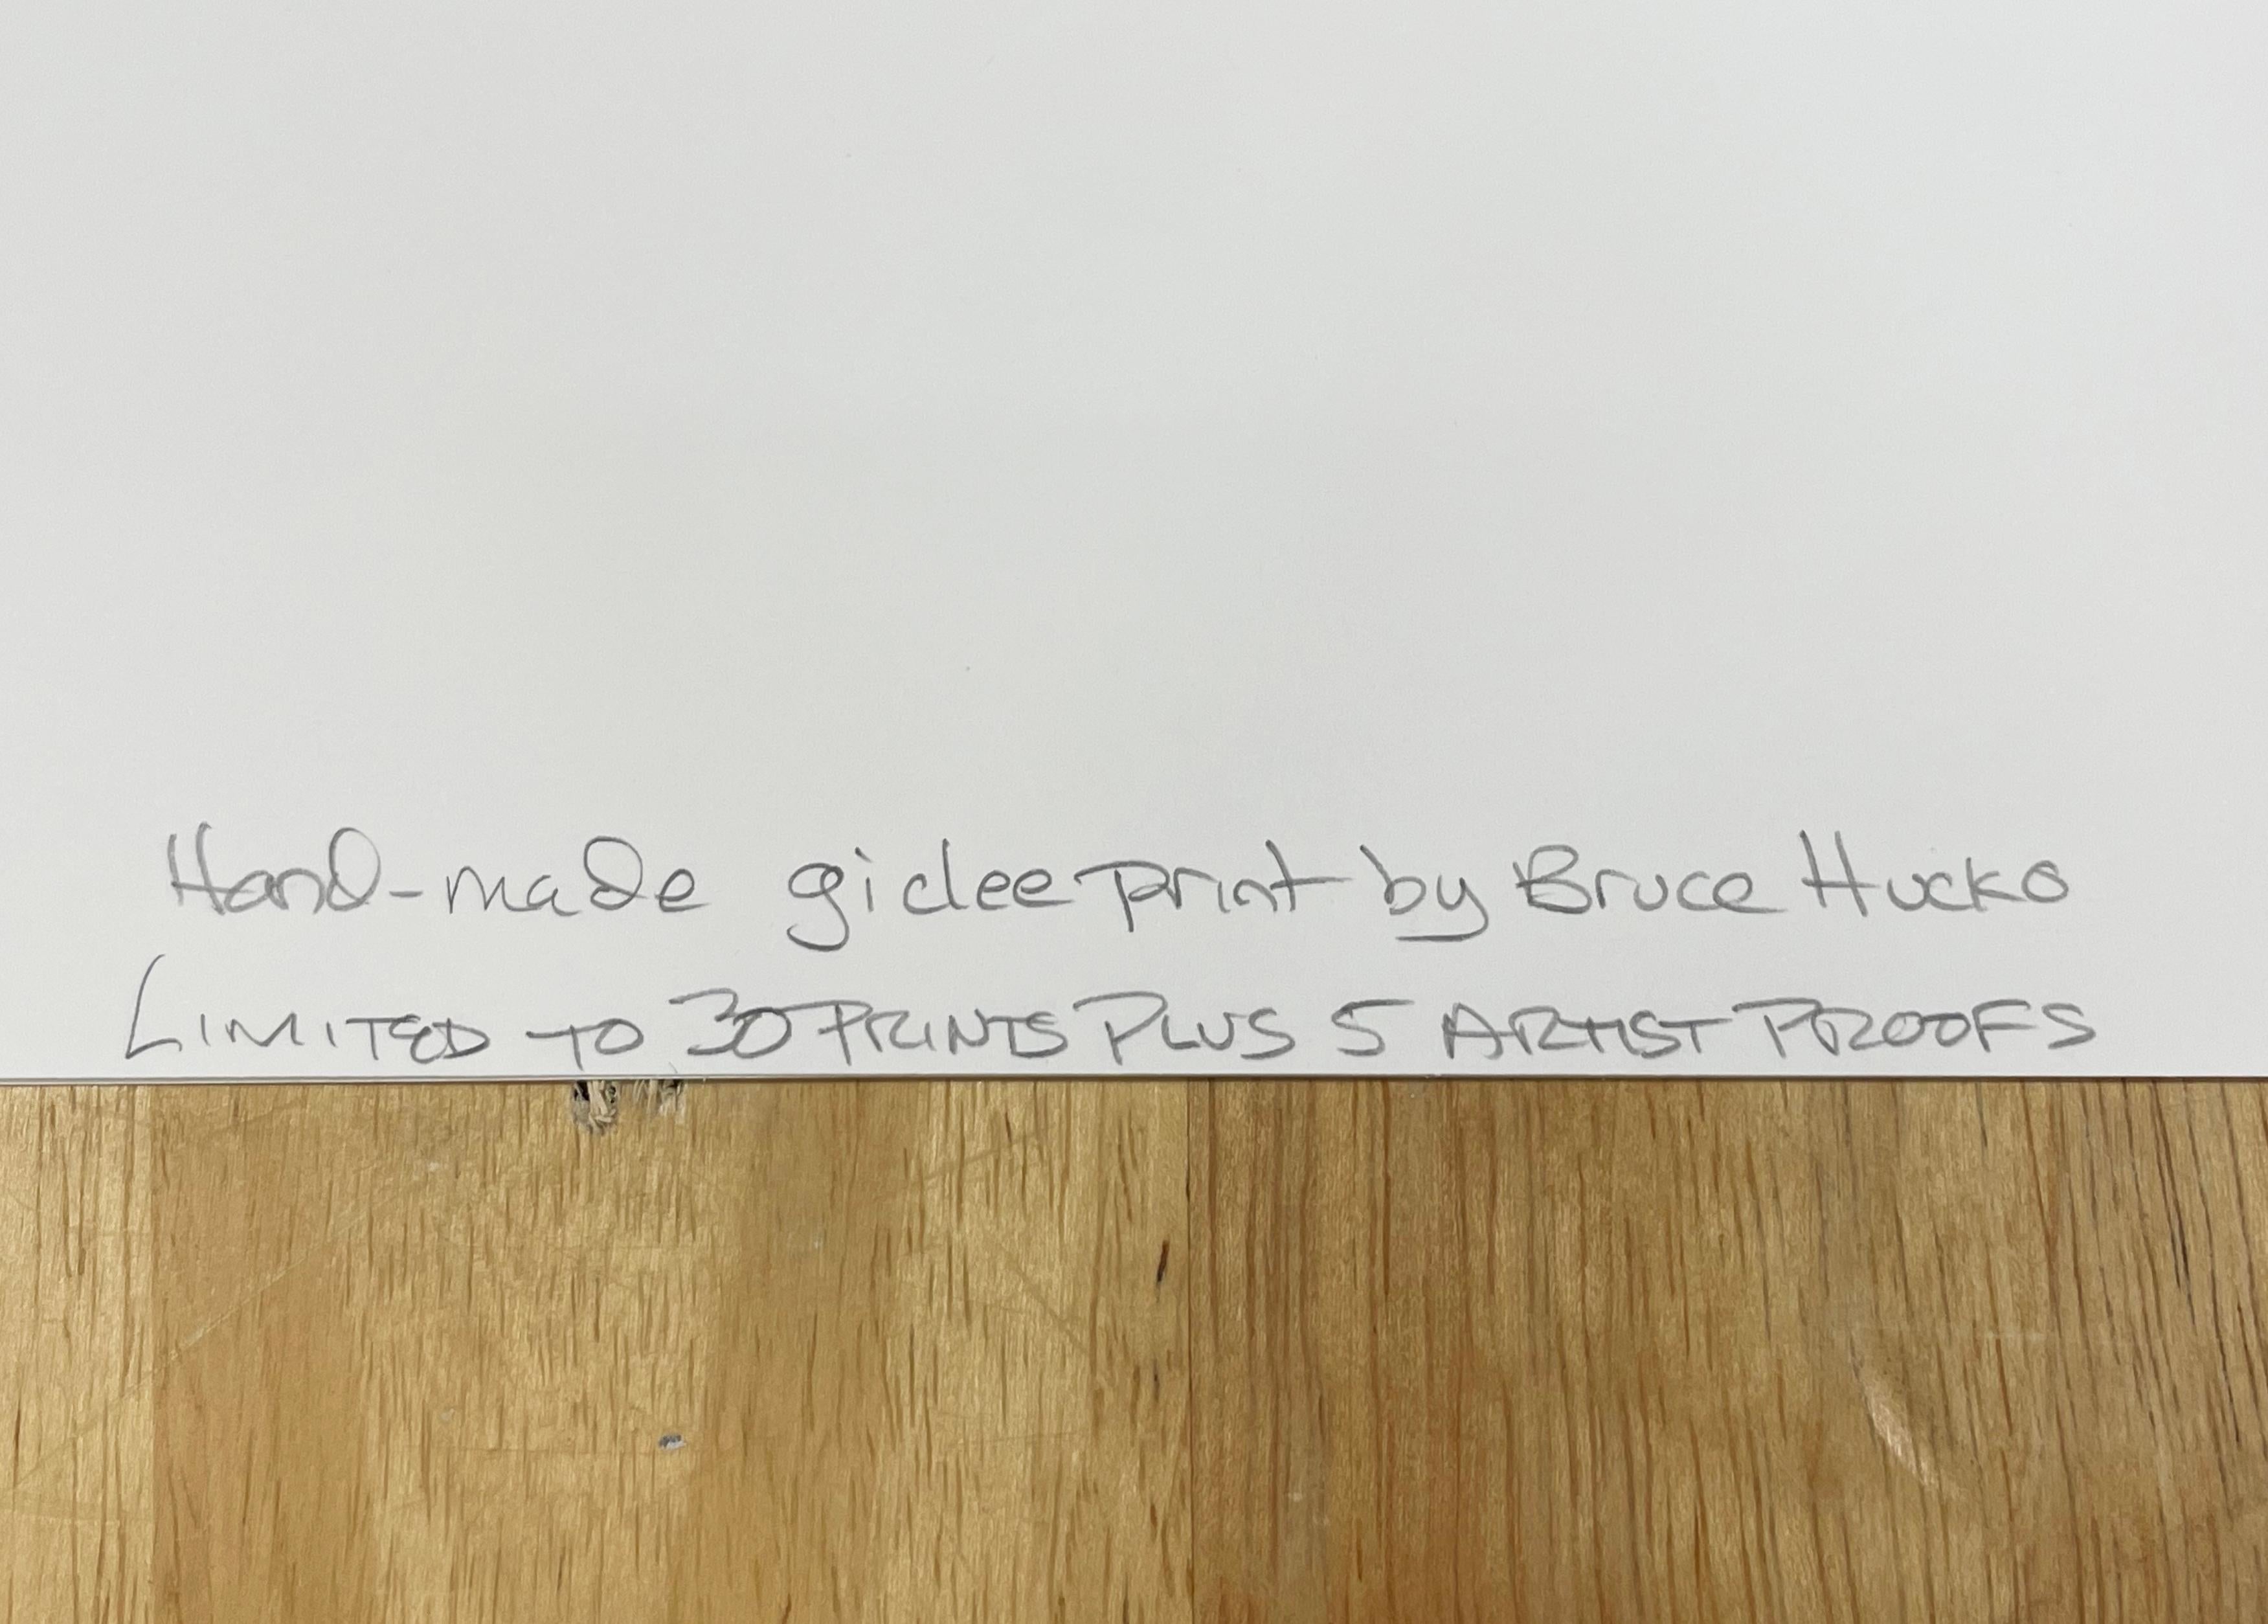 Hand-made giclee print by Bruce Hucko
LIMITED TO 30 PRINTS PLUS 5 ARTIST PROOFS